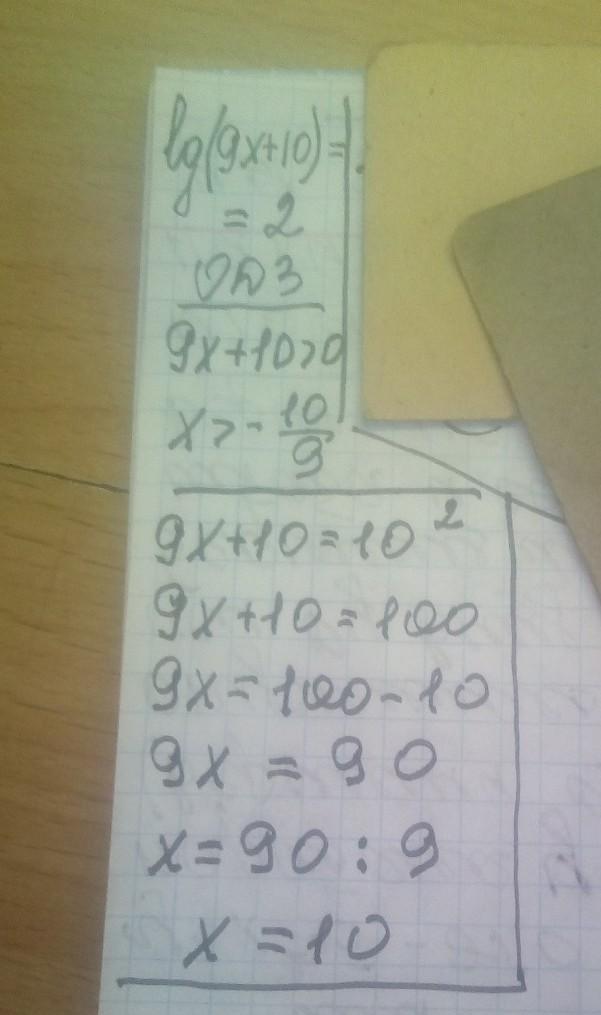 lg(9x+10)=
= 2
ОДЗ
9x+10>0
x>-10/9
9x+10=10²
9x+10=100
9x=100-10
9x = 90
x=90:9
x=10